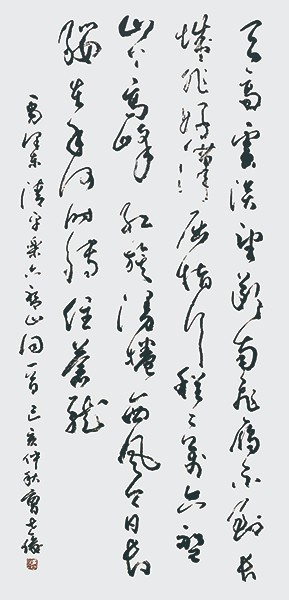 天高雲淡望斷南飛雁不到長
城非好漢屈指行程二萬六盤
山上高峰紅旗漫捲西風今日長
纓在手何時縛住蒼龍
毛澤東清平樂六盤山詞一首己亥仲秋曹